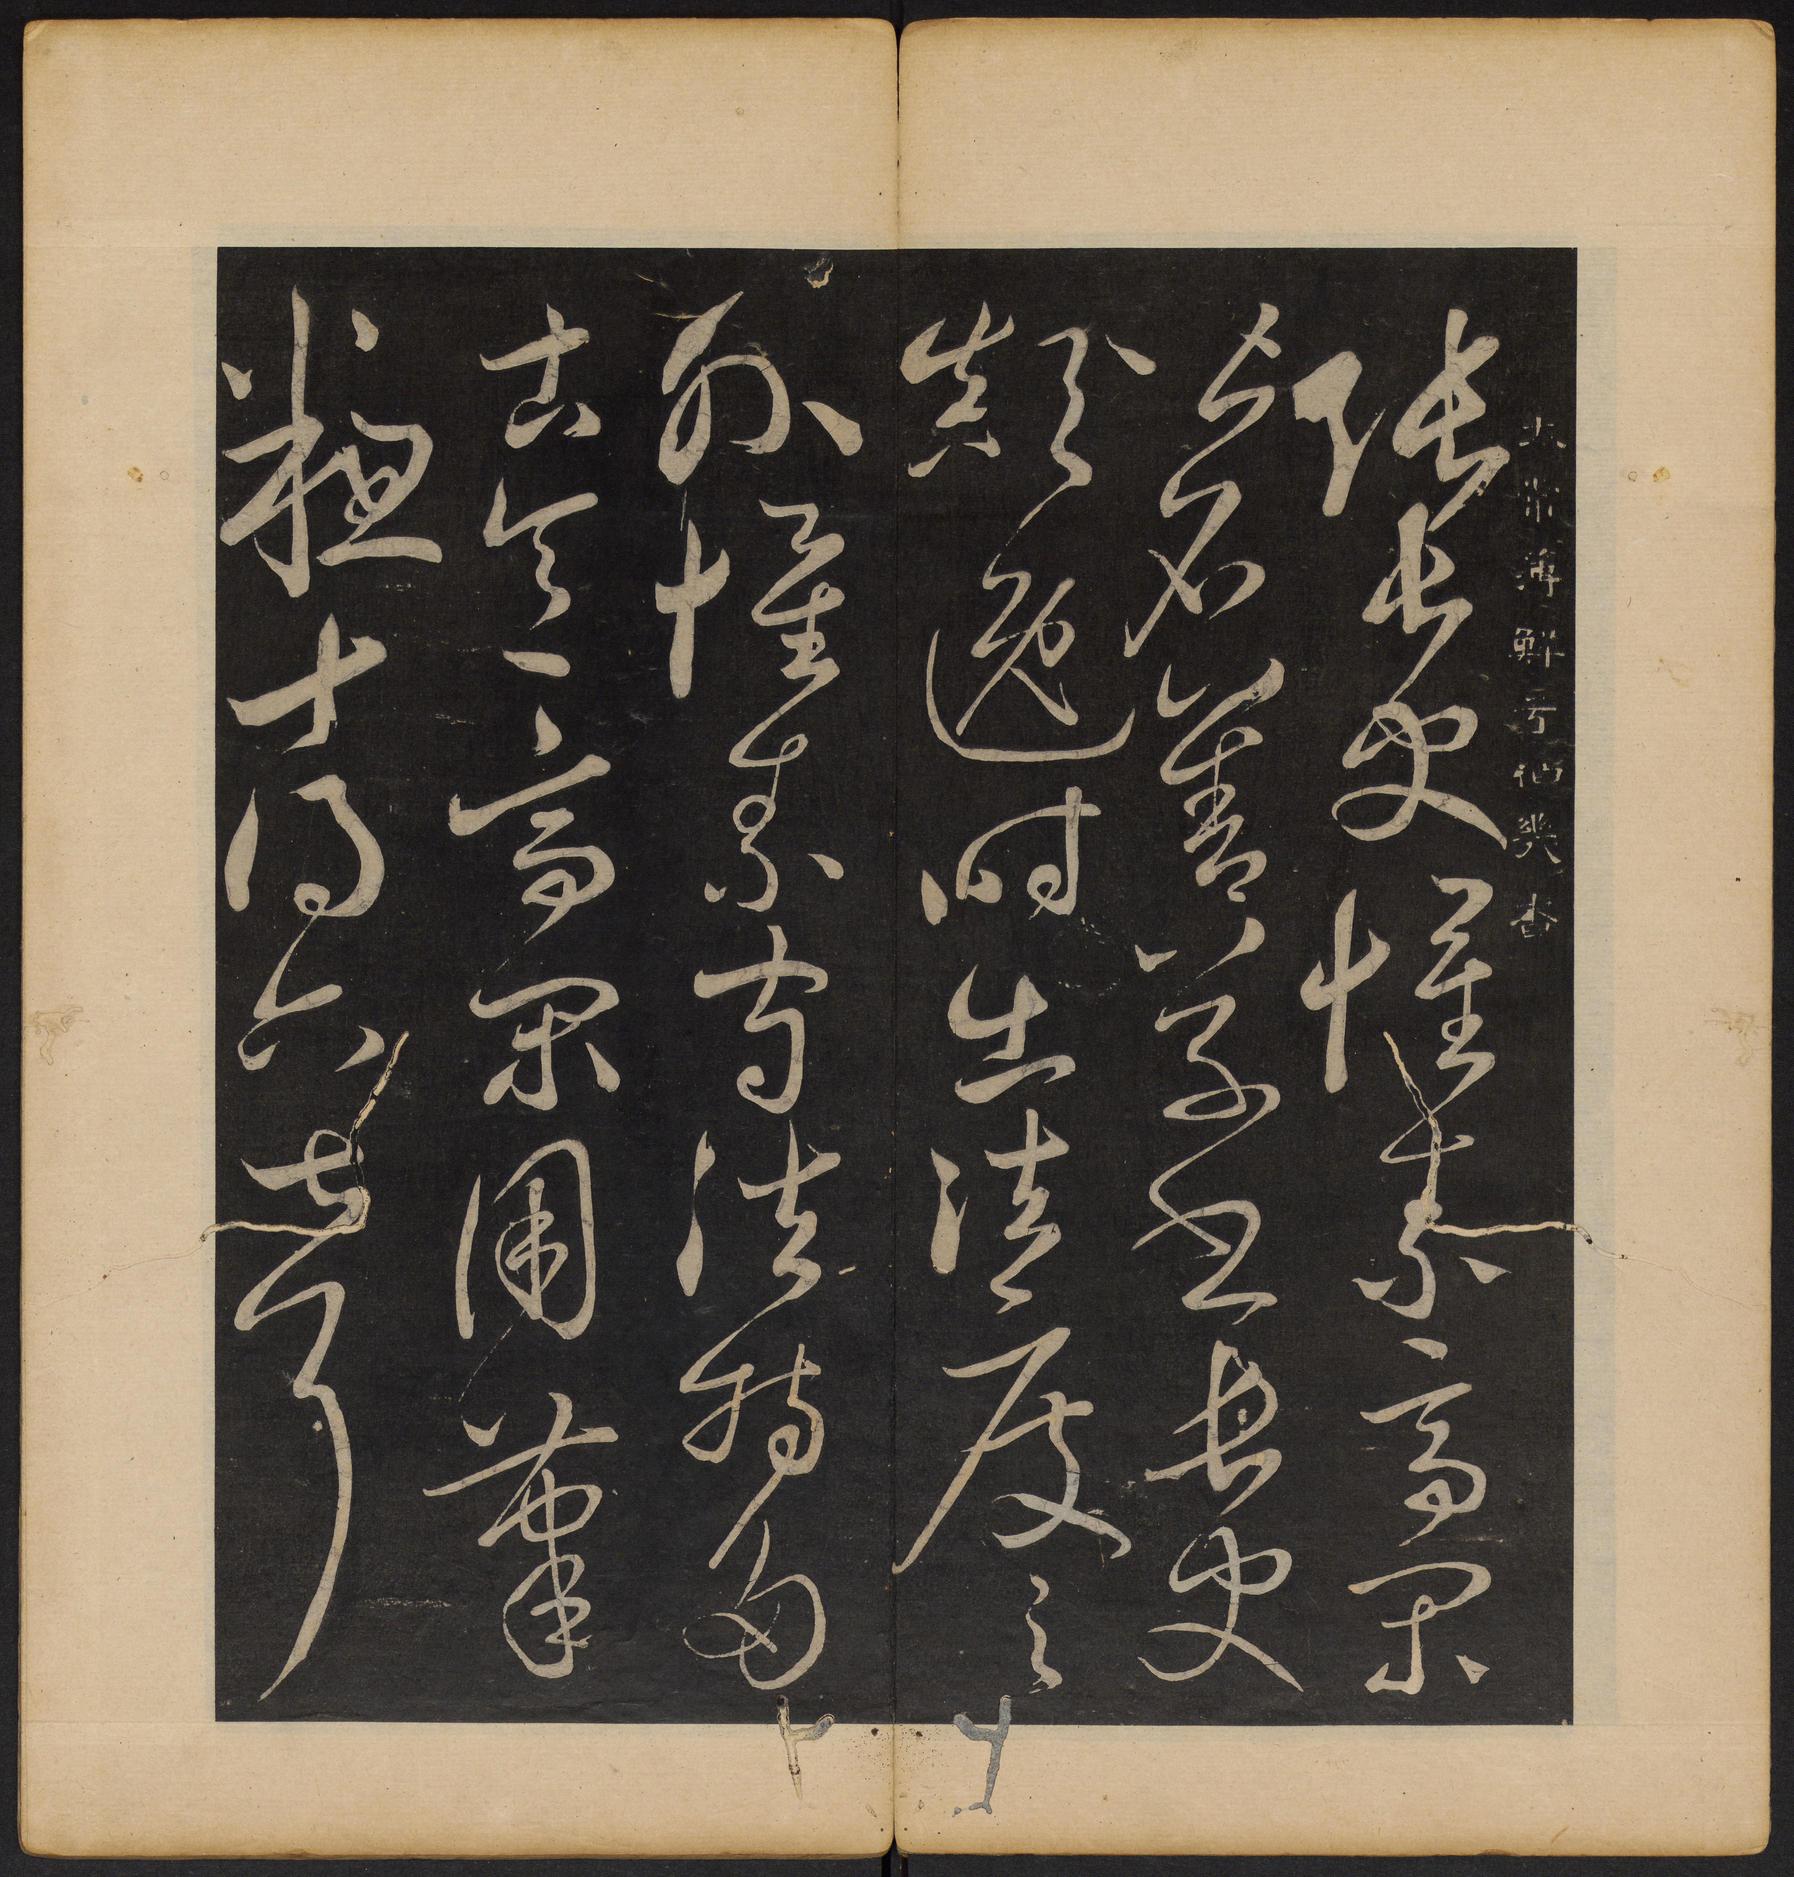 太常簿鮮于伯幾書
張長史懷素高閑
皆名善草書長史
顛逸時出法度之
外懷素守法特多
古意高閑用筆
粗十得六七耳